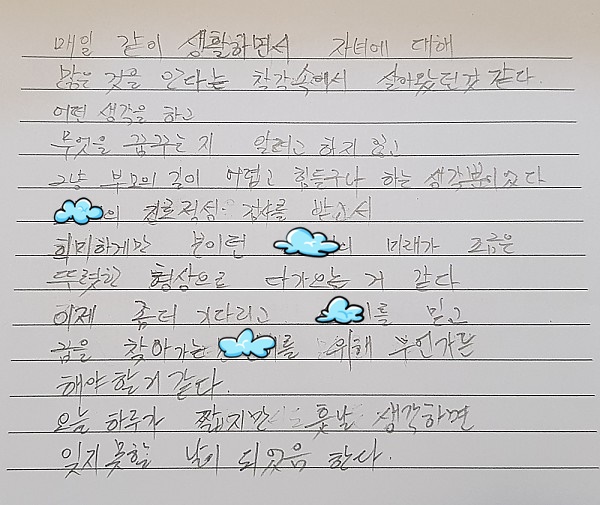 매일 같이 생활하면서 자녀에 대해
많은 것을 안다는 착각속에서 살아왔던것 같다.
어떤 생각을 하고
무엇을 꿈꾸는 지 알려고 하지 않고
그냥 부모의 길이 어렵고 힘들구나 하는 생각뿐이었다
의 진로적성 검사를 받고서
희미하게만 보이던 의 미래가 조금은
뚜렷한 형상으로 다가오는 거 같다
이제 좀더 기다리고 를 믿고
꿈을 찾아가는 를 위해 무언가를
해야할거 같다.
오늘 하루가 짧지만 훗날 생각하면
잊지못할 날이 되었음 한다.